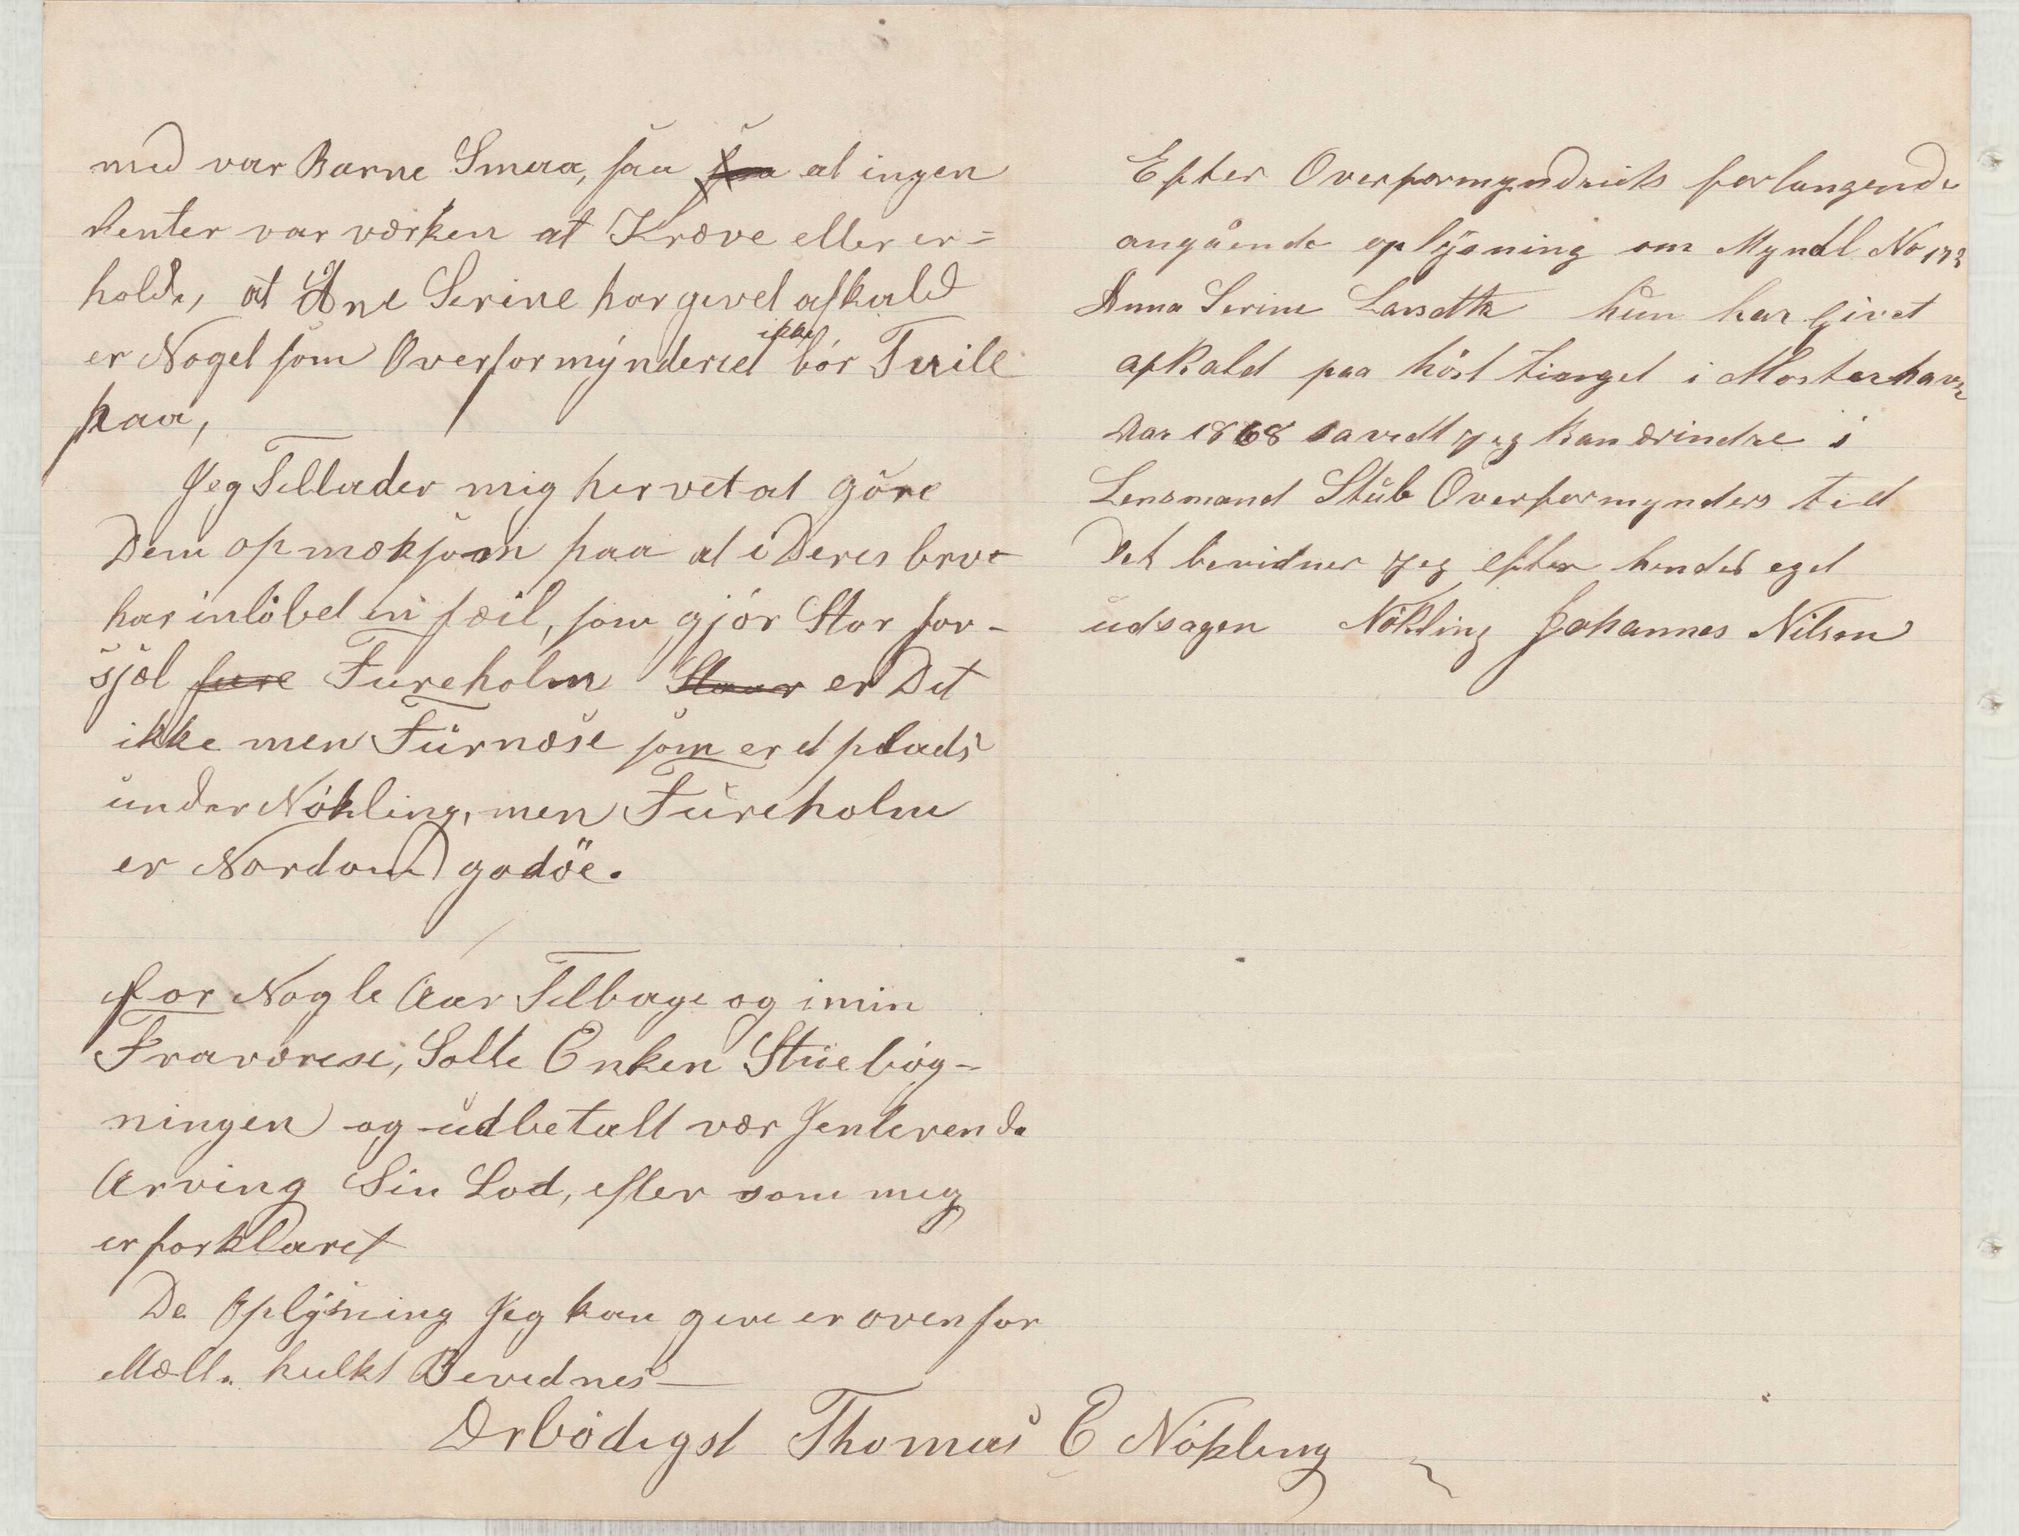 med var Barne Smaa, saa saa at ingen
Renter var værken at Kræve eller er=
holde, at Ane Serine har givet afkald
er Noget som Overformynderiet ikke bör Tvile
paa,
Jeg Tellader mig hervet at göre
Dem opmækjsom paa at i Deres brve
har inlöbet en fæil, som gjör Stor for-
sjæl fure Fureholm Staar er Det
ikke men Furnæse som er et plads
under Nökling, men Fureholm
er Nordom godöe.
for Nogle Aar Telbage og i min
Fraværese, Solte Enken Stuebög-
ningen og udbetalt vær Jenlevende
Arving Sin Lod, efter som mig
er forklaret
De Oplysning Jeg kan give er ovenfor
Mælt. hvilkt Bevednes
Ærbödigst Thomas E Nökling
Efter Overformyndriets forlangende
angående oplysning om Myndl. No 173
Anna Serine Larsdtr hun har Givet
afkald paa höst tinget i Mosterhavn
Aar 1868 savidt jeg kan ærindre i
Lensmand Stub Overformynders tid
Det bevidner jeg efter hendes eget
udsagen Nökling Johannes Nilsen